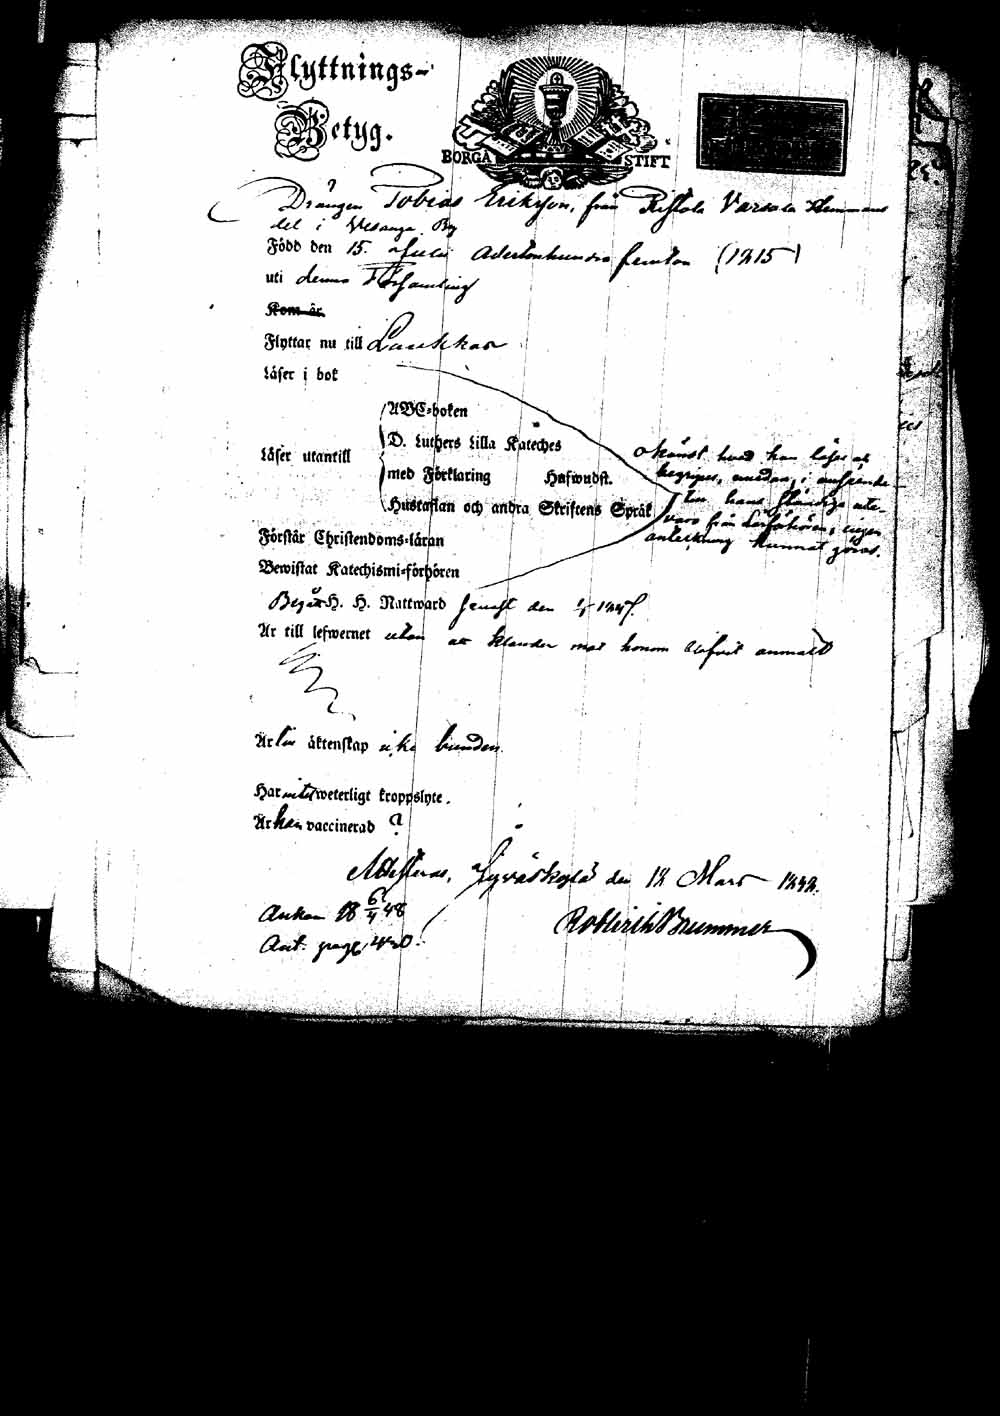 Flyttnings-
Betyg.
BORGÅ STIFT
Drängen Tobias Eriksson, från Ristola Varsala Hemmans
del i Vesanga By
Född den 15. Juli Adertonhundra femton (1815)
uti denna Församling
Kom år
Flyttar nu till Laukkas
Läser i bok
ABC-boken
Läser utantill
D. Luthers Lilla Kateches
med Förklaring Hufwudst.
Hustaflan och andra Skriftens Språk
okänst hvad han läser och
begriper, emedan, i anseende
till hans ständiga ute-
varo från Läsförhören, ingen
anteckning kunnat göras.
Förstår Christendoms-läran
Bewistat Katechismi-förhören
Begått H. H. Nattward senast den
Är till lefwernet utan att klander mot honom blifvit anmält
Är till äktenskap icke bunden.
Har intet weterligt kroppslyte.
Är han vaccinerad ?
Attesteras, Jyväskylä den 18 Mars 1848.
Ankom 18 6/4 48
Rob Brummer
Ant. pag